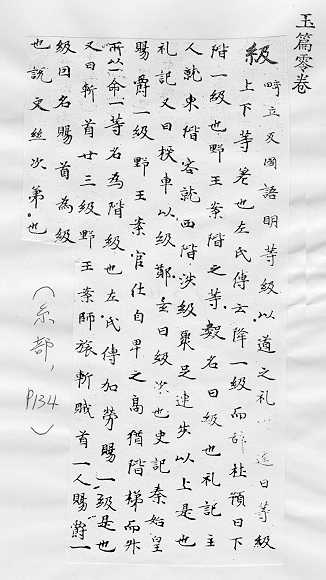 玉篇零卷
級 畸立反国語明等級以道之礼逵曰等級
上下等差也左氏傳云降一級而辞杜預曰下
階一級也野王案階之等數名曰級也礼記主
人就東階客就西階涉級聚足連步以上是也
礼記又曰授車以級鄭玄曰級次也史記秦始皇
賜爵一級野王案官仕自卑之高猶階梯而升
所以命一等名為階級也左氏傳加勞賜一級是也
又曰斬首廿三級野王案師旅斬賊首一人賜爵一
級因名賜首為級
也説文絲次第也
(糸部, P134)